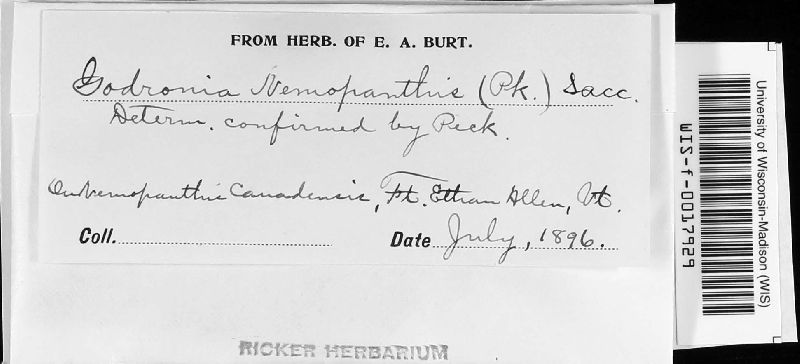 FROM HERB. OF E. A. BURT.
Godronia Nemopanthis (Pk.) Sacc.
Determ. confirmed by Peck.
On Nemopanthis Canadensis, Ft. Ethan Allen, Vt.
Coll. Date July, 1896.
RICKER HERBARIUM
University of Wisconsin-Madison (WIS)
WIS-f-0017929